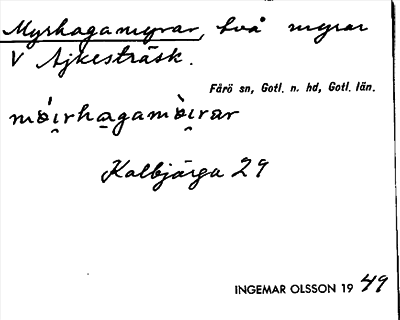 Myrhagamyrar, två myrar
V Ajkesträsk.
Fårö sn, Gotl. n. hd, Gotl. län.
mɵ́i̯rha̲gamɵ̀i̯rar
Kalbjärga 29
INGEMAR OLSSON 19 49